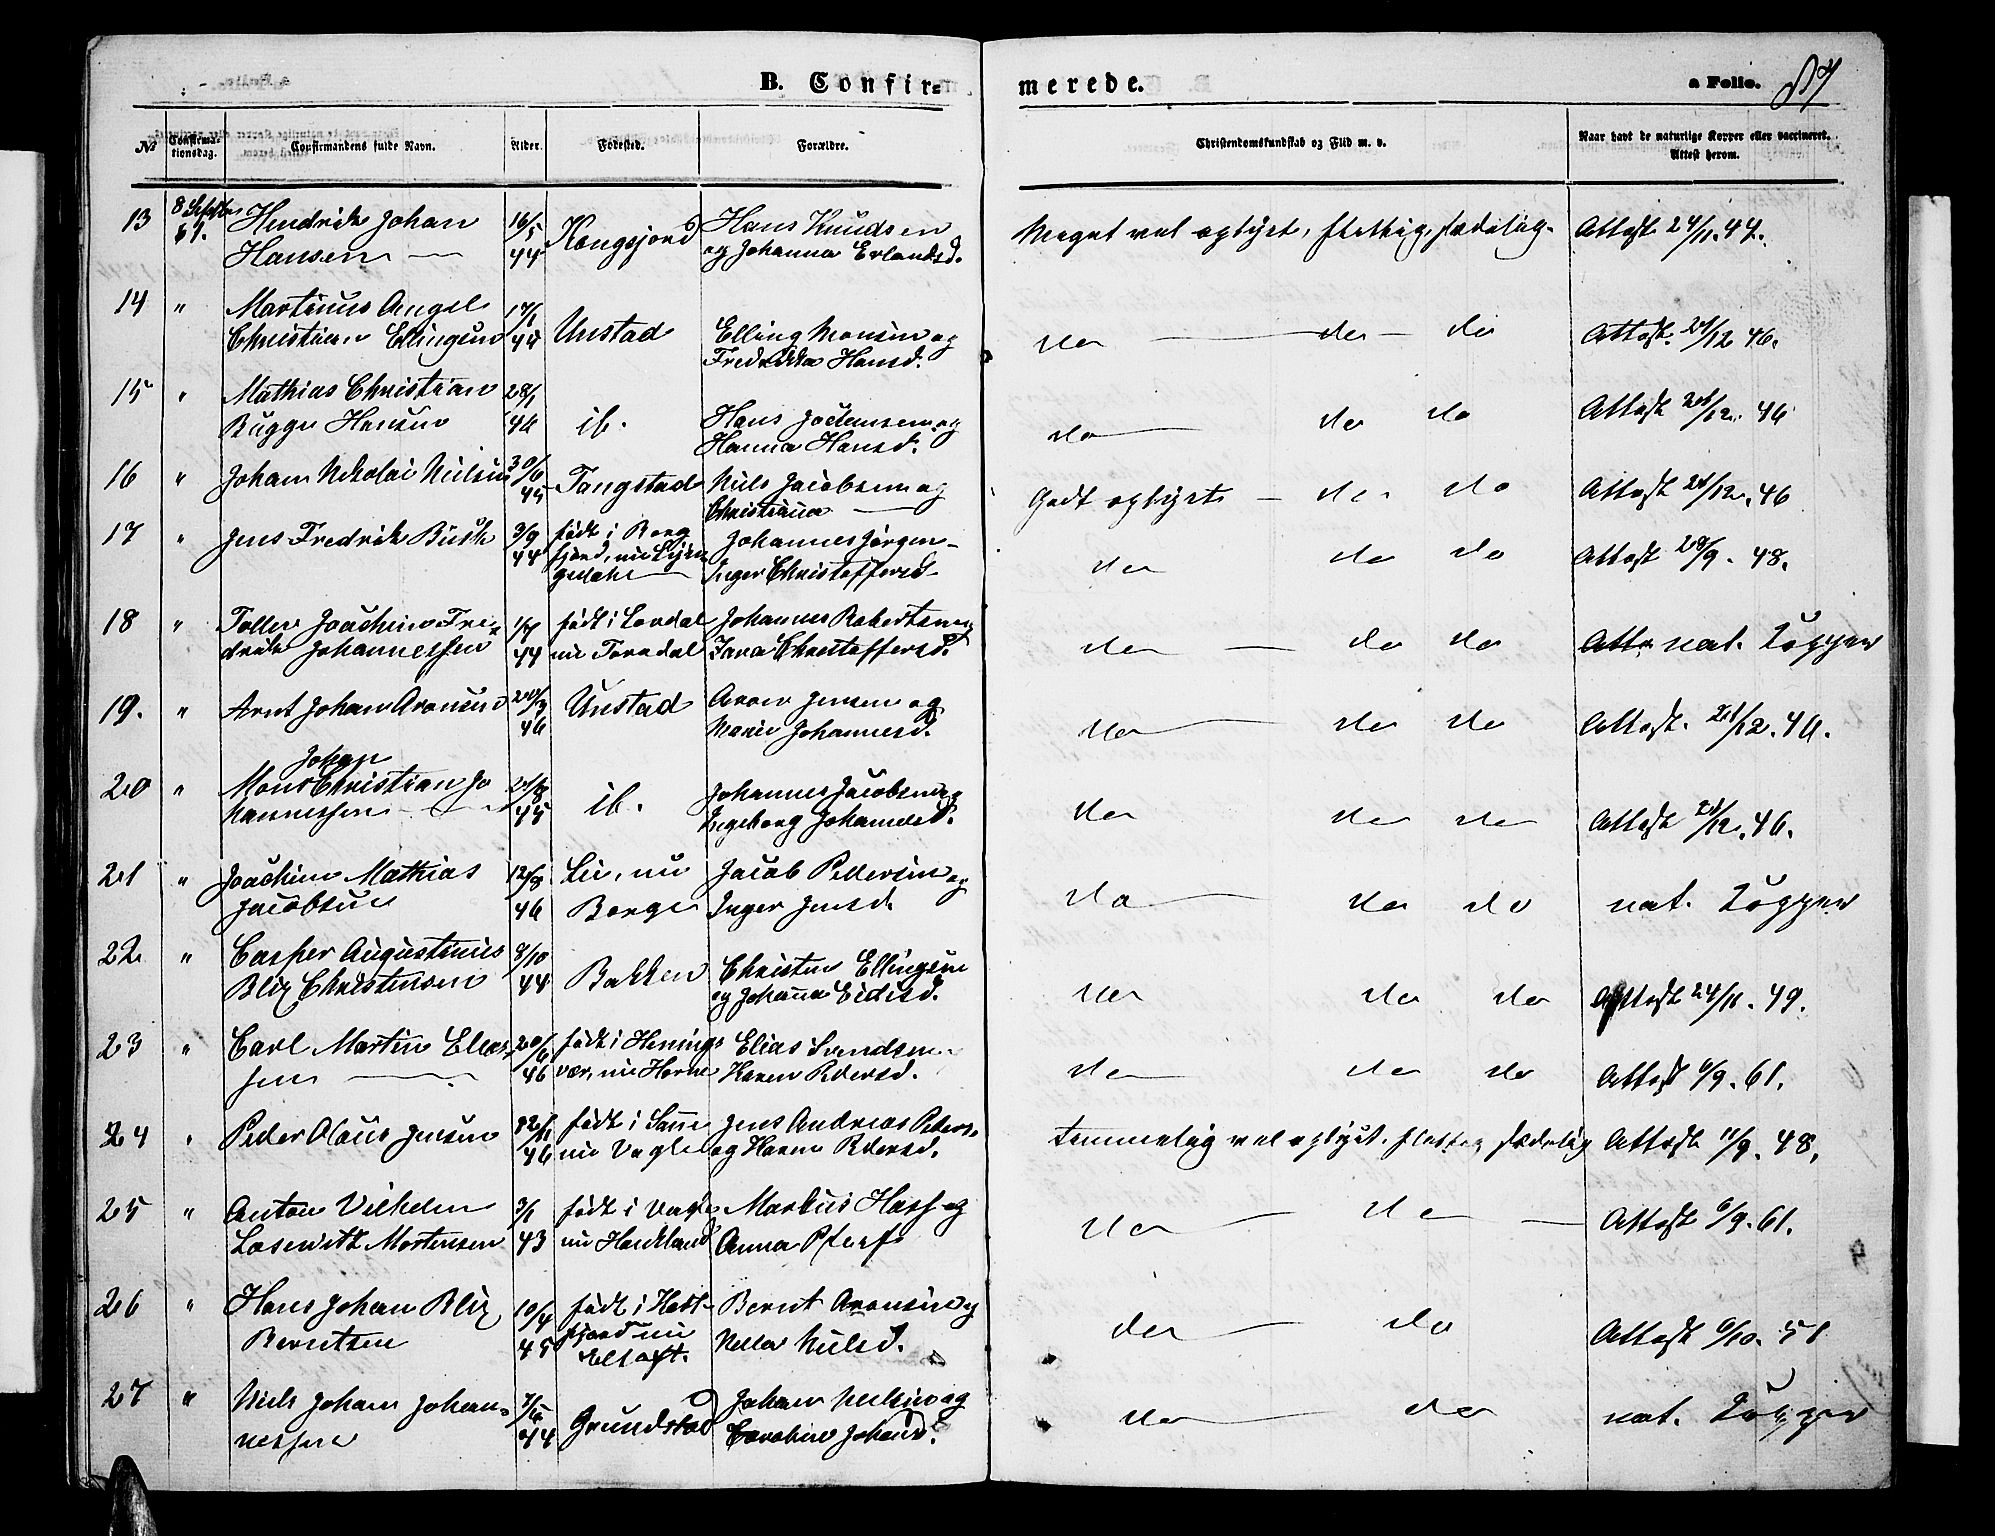 B. Confir=
merede.
a Folio. 87
No Confirmationsdag. Confirmandens fulde Navn. Alder. Fødested. Forældre. Christendomskundskab og Flid m. v. Naar havt de naturlige Kopper eller vaccineret. Attest herom.
13 8 Septbr Hendrik Johan 16/5 Kongsjord Hans Knudsen Meget vel oplyst, flittig, sædelig. Attest 24/11.47.
61. Hansen 44 og Johanna Erlandsd.
14 " Martinus Angel 17/1 Unstad Elling Monsen og do do do Attest 21/12 46.
Christian Ellingsen 44 Fredrikka Hansd.
15 " Mathias Christian 28/1 ib. Hans Jochensen og do do do Attest 21/12. 46
Bugge Hansen 46 Hanna Hansd.
16 " Johan Nikolai Nielsen 30/6 Tangstad Niels Jacobsen og Godt oplyst do do Attest 21/12. 46
45 Christianna
17 " Jens Fredrik Busk 3/9 født i Borg Johannes Jørgen- do do do Attest 28/9. 48.
44 fjord, nu Inger Christoffersd.
18 " Tollev Joachim Fre= født i Lovdal Johannes Robertsen og do do do nat. Kopper
drik Johannessen 44 nu Torvdal Jana Christoffersd.
19. " Arnt Johan Aronsen 20/3 Unstad Aron Jensen og do do do Attest. 21/12. 46.
46 Maria Johannesd.
Johan
20 " Mons Christian Jo 21/8 ib. Johannes Jacobsen og do do do Attest 21/12. 46.
hannessen 45 Ingeborg Johannesd.
21 " Joachim Mathias 12/8 Lie, nu Jacob Pedersen og do do do nat. Kopper
Jacobsen 46 Borge Inger Jensd.
22 " Casper Augustinus 8/10 Bakken Christen Ellingsen do do do Attest 24/11. 49.
Blix Christensen 44 og Johanna Eidisd.
23 " Carl Martin Elias- 20/6 født i Henings Elias Svendsen do do do Attest 6/9. 61.
sen 46 vær, nu Horne Karen Pedersd.
24 " Peder Olaus Jensen født i Sane Jens Andreas Peders. Temmelig vel oplyst, flittig, sædelig Attest 11/9. 48.
46 nu Vagle og Karen Pedersd.
25 " Anton Vilhelm 3/1 født i Vagle Markus Hass og do do Attest 6/9. 61.
Losewitz Mortensen 43 nu Haukland Anna
26 " Hans Johan Blix 10/4 født i Hest- Bernt Aronsen og do do Attest 6/10. 51
Berntsen 45 fjord nu Nella Nielsd.
Eltoft.
27 " Niels Johan Johan= Grundstad Johan Nielsen og do do nat. Kopper
nessen 44 Caroline Johansd.